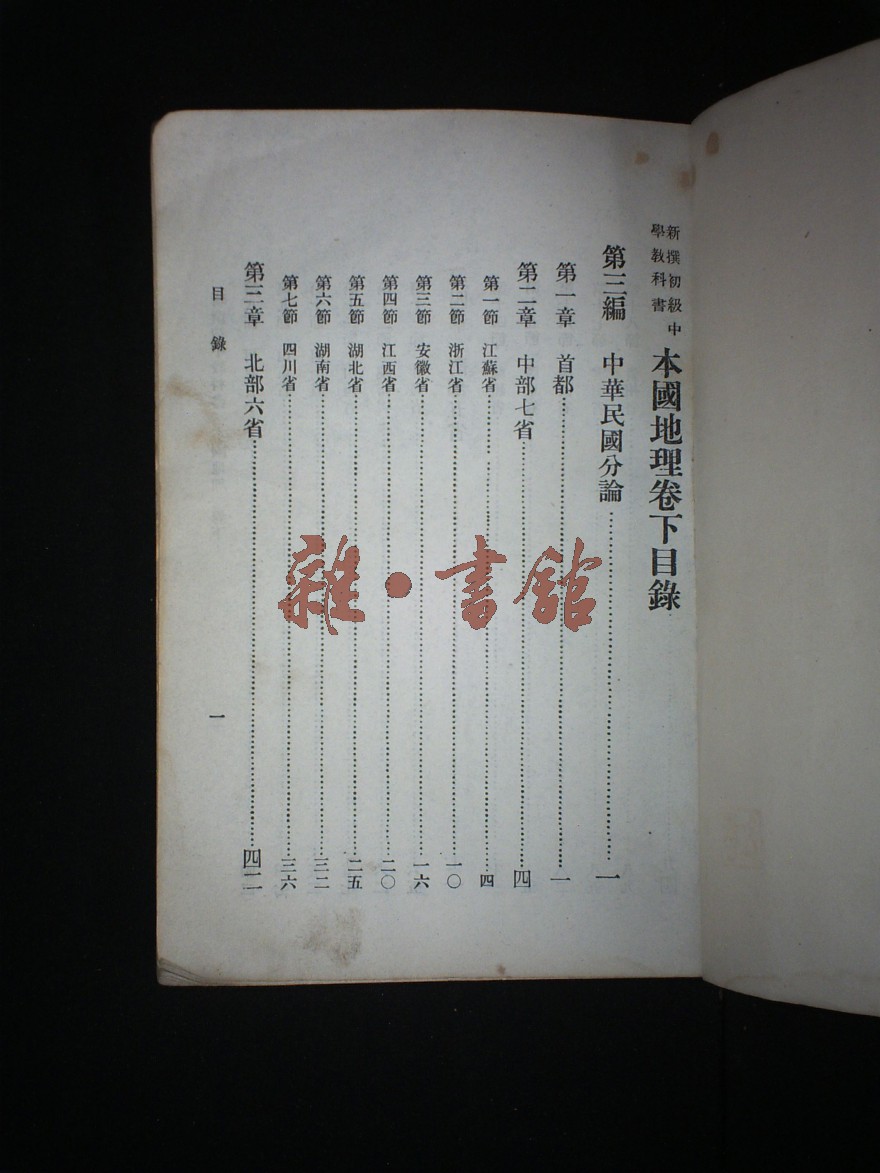 新撰初級中
學教科書
本國地理卷下目錄
第三編　中華民國分論……一
第一章　首都……一
第二章　中部七省……四
第一節　江蘇省……四
第二節　浙江省……一〇
第三節　安徽省……一六
第四節　江西省……二〇
第五節　湖北省……二五
第六節　湖南省……三二
第七節　四川省……三六
第三章　北部六省……四二
目錄　一
雜·書館